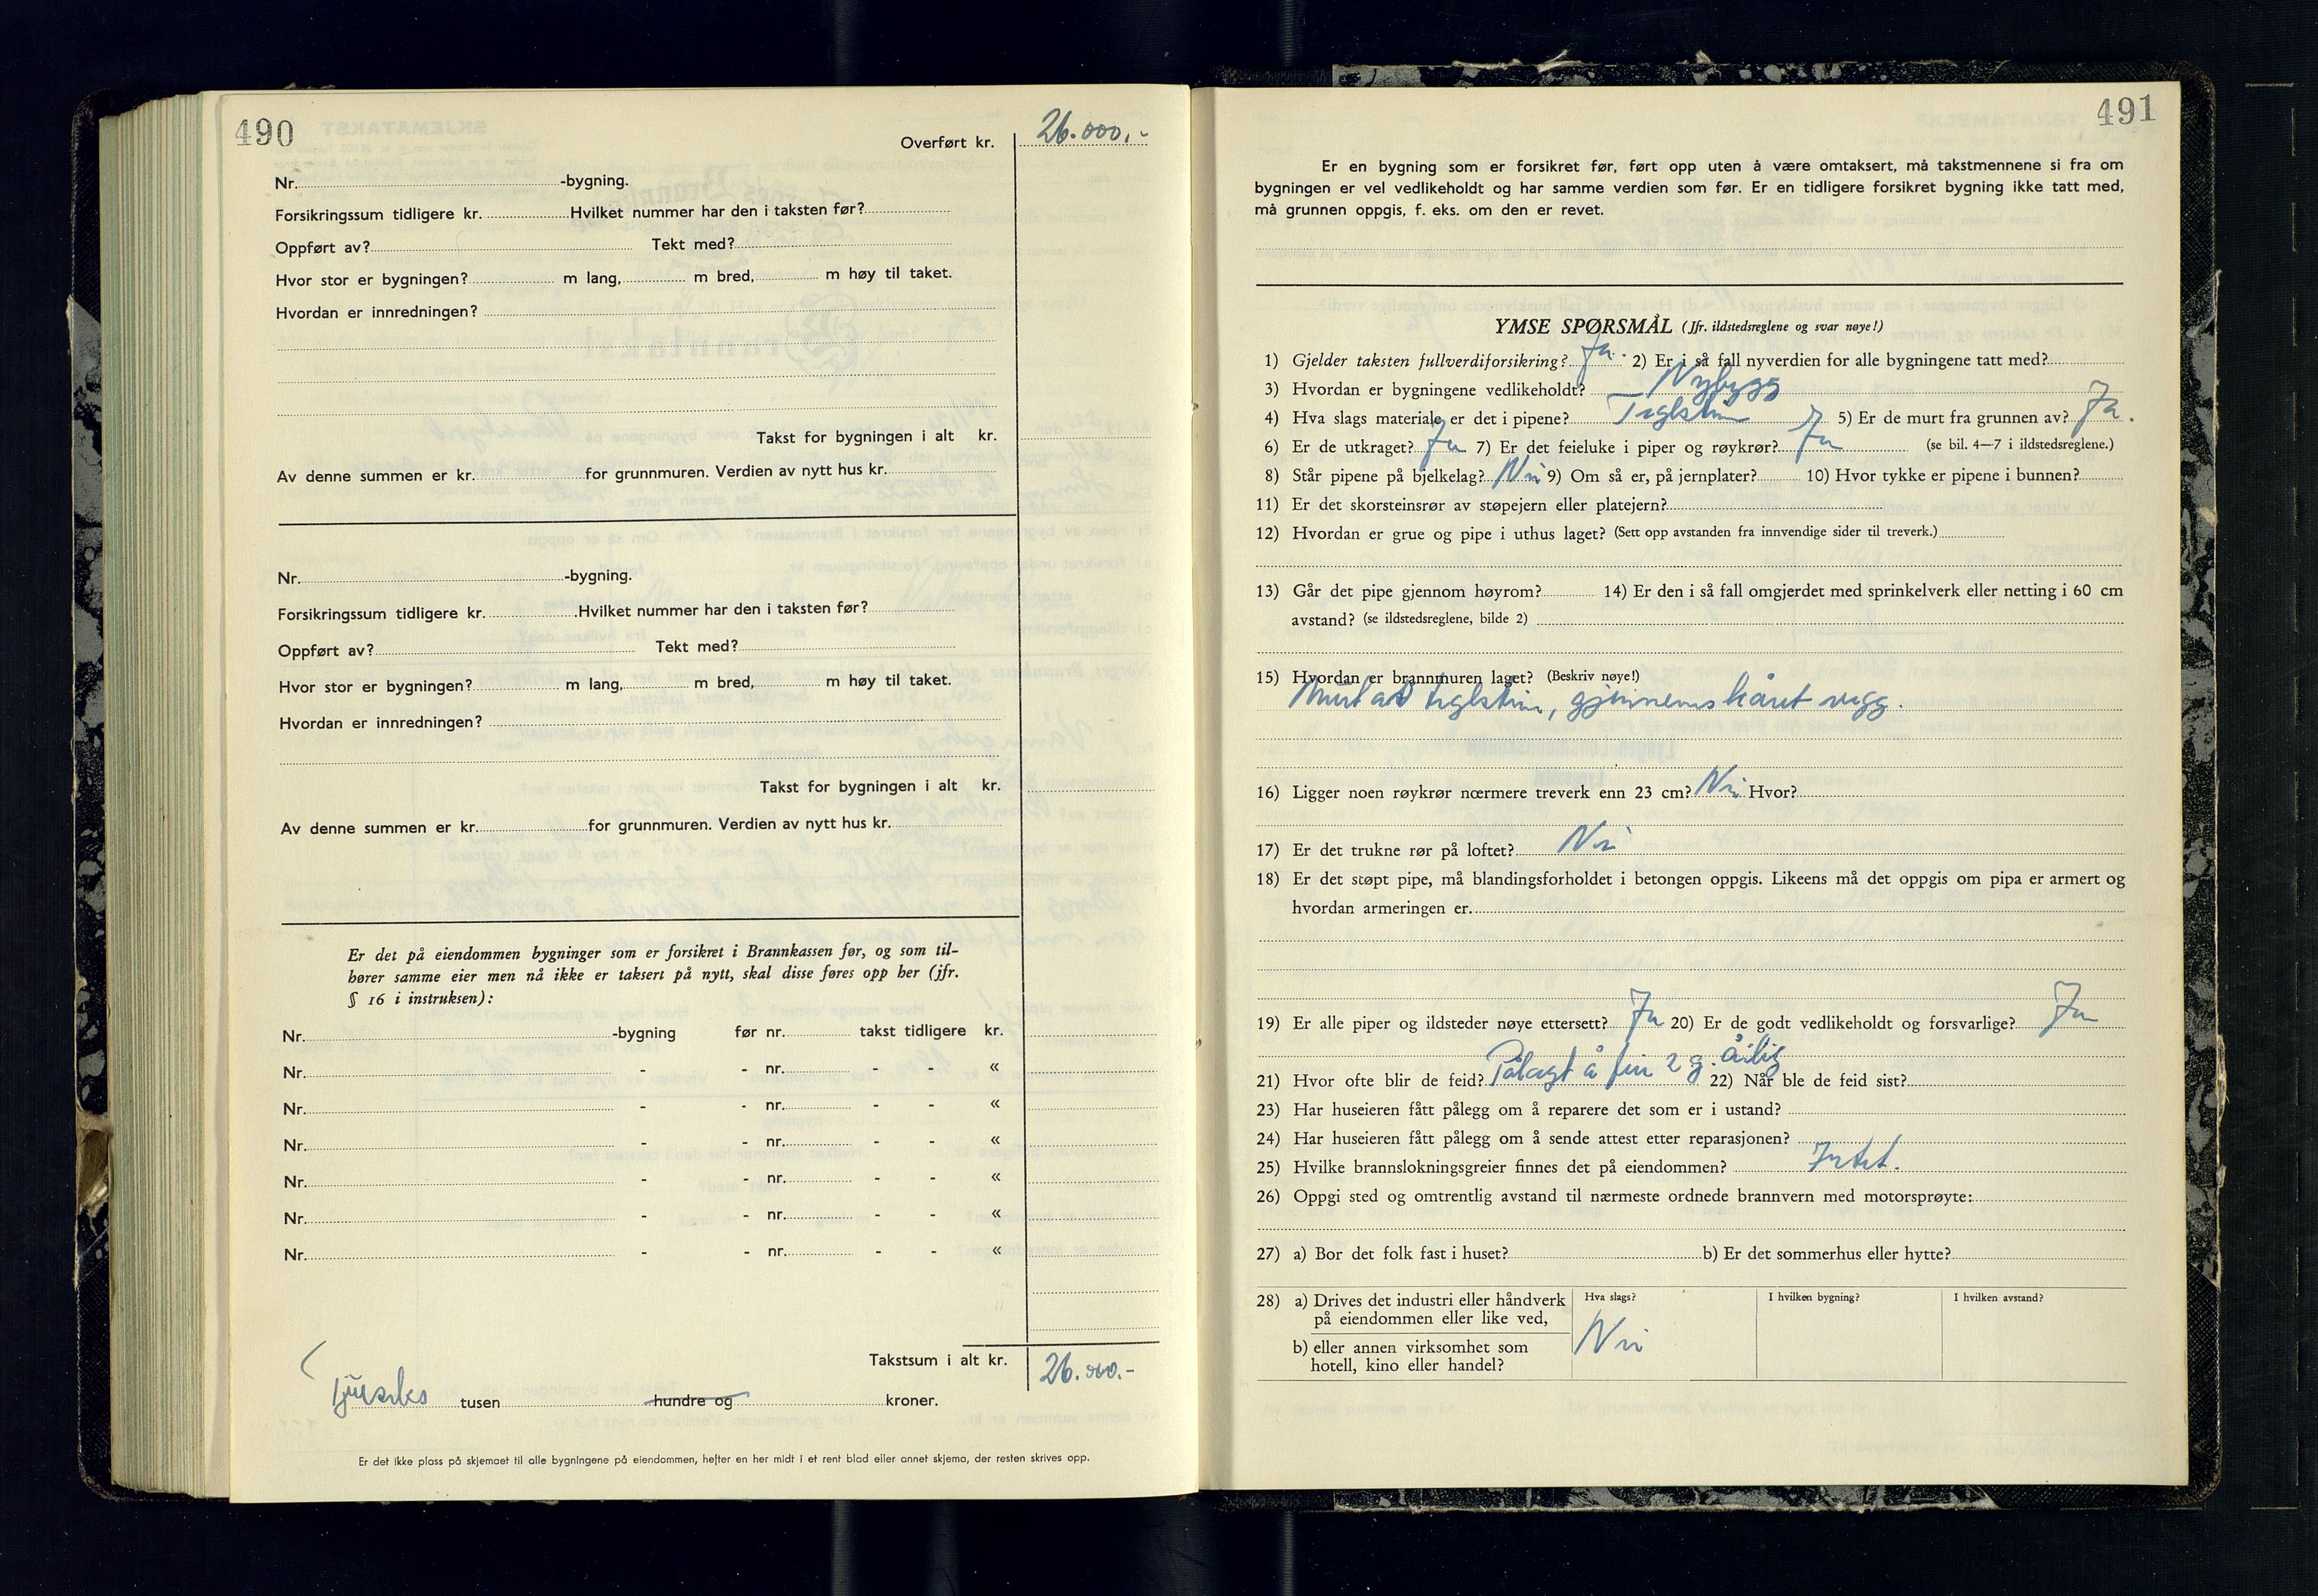 490
Overført kr. 26.000.-
Nr. -bygning.
Forsikringssum tidligere kr. Hvilket nummer har den i taksten før?
Oppført av? Tekt med?
Hvor stor er bygningen? m lang, m bred, m høy til taket.
Hvordan er innredningen?
Takst for bygningen i alt kr.
Av denne summen er kr. for grunnmuren. Verdien av nytt hus kr.
Nr. -bygning.
Forsikringssum tidligere kr. Hvilket nummer har den i taksten før?
Oppført av? Tekt med?
Hvor stor er bygningen? m lang, m bred, m høy til taket.
Hvordan er innredningen?
Takst for bygningen i alt kr.
Av denne summen er kr. for grunnmuren. Verdien av nytt hus kr.
Er det på eiendommen bygninger som er forsikret i Brannkassen før, og som til-
hører samme eier men nå ikke er taksert på nytt, skal disse føres opp her (jfr.
§ 16 i instruksen):
Nr. -bygning før nr. takst tidligere kr.
Nr. - - nr. - - «
Nr. - - nr. - - «
Nr. - - nr. - - «
Nr. - - nr. - - «
Nr. - - nr. - - «
Nr. - - nr. - - «
Takstsum i alt kr. 26.000.-
tjueseks tusen hundre og kroner.
Er det ikke plass på skjemaet til alle bygningene på eiendommen, hefter en her midt i et rent blad eller annet skjema, der resten skrives opp.
491
Er en bygning som er forsikret før, ført opp uten å være omtaksert, må takstmennene si fra om
bygningen er vel vedlikeholdt og har samme verdien som før. Er en tidligere forsikret bygning ikke tatt med,
må grunnen oppgis, f. eks. om den er revet.
YMSE SPØRSMÅL (Jfr. ildstedsreglene og svar nøye!)
1) Gjelder taksten fullverdiforsikring? Ja. 2) Er i så fall nyverdien for alle bygningene tatt med?
3) Hvordan er bygningene vedlikeholdt? Nybygg
4) Hva slags materiale er det i pipene? Teglstein 5) Er de murt fra grunnen av? Ja.
6) Er de utkraget? Ja 7) Er det feieluke i piper og røykrør? Ja (se bil. 4—7 i ildstedsreglene.)
8) Står pipene på bjelkelag? Nei 9) Om så er, på jernplater? 10) Hvor tykke er pipene i bunnen?
11) Er det skorsteinsrør av støpejern eller platejern?
12) Hvordan er grue og pipe i uthus laget? (Sett opp avstanden fra innvendige sider til treverk.)
13) Går det pipe gjennom høyrom? 14) Er den i så fall omgjerdet med sprinkelverk eller netting i 60 cm
avstand? (se ildstedsreglene, bilde 2)
15) Hvordan er brannmuren laget? (Beskriv nøye!)
Murt av teglstein, gjennemskåret vegg.
16) Ligger noen røykrør nærmere treverk enn 23 cm? Nei Hvor?
17) Er det trukne rør på loftet? Nei
18) Er det støpt pipe, må blandingsforholdet i betongen oppgis. Likeens må det oppgis om pipa er armert og
hvordan armeringen er.
19) Er alle piper og ildsteder nøye ettersett? Ja 20) Er de godt vedlikeholdt og forsvarlige? Ja
21) Hvor ofte blir de feid? Pålagt å feie 2 g. årlig 22) Når ble de feid sist?
23) Har huseieren fått pålegg om å reparere det som er i ustand?
24) Har huseieren fått pålegg om å sende attest etter reparasjonen?
25) Hvilke brannslokningsgreier finnes det på eiendommen? Intet.
26) Oppgi sted og omtrentlig avstand til nærmeste ordnede brannvern med motorsprøyte:
27) a) Bor det folk fast i huset? b) Er det sommerhus eller hytte?
28) a) Drives det industri eller håndverk Hva slags? I hvilken bygning? I hvilken avstand?
på eiendommen eller like ved,
b) eller annen virksomhet som Nei
hotell, kino eller handel?